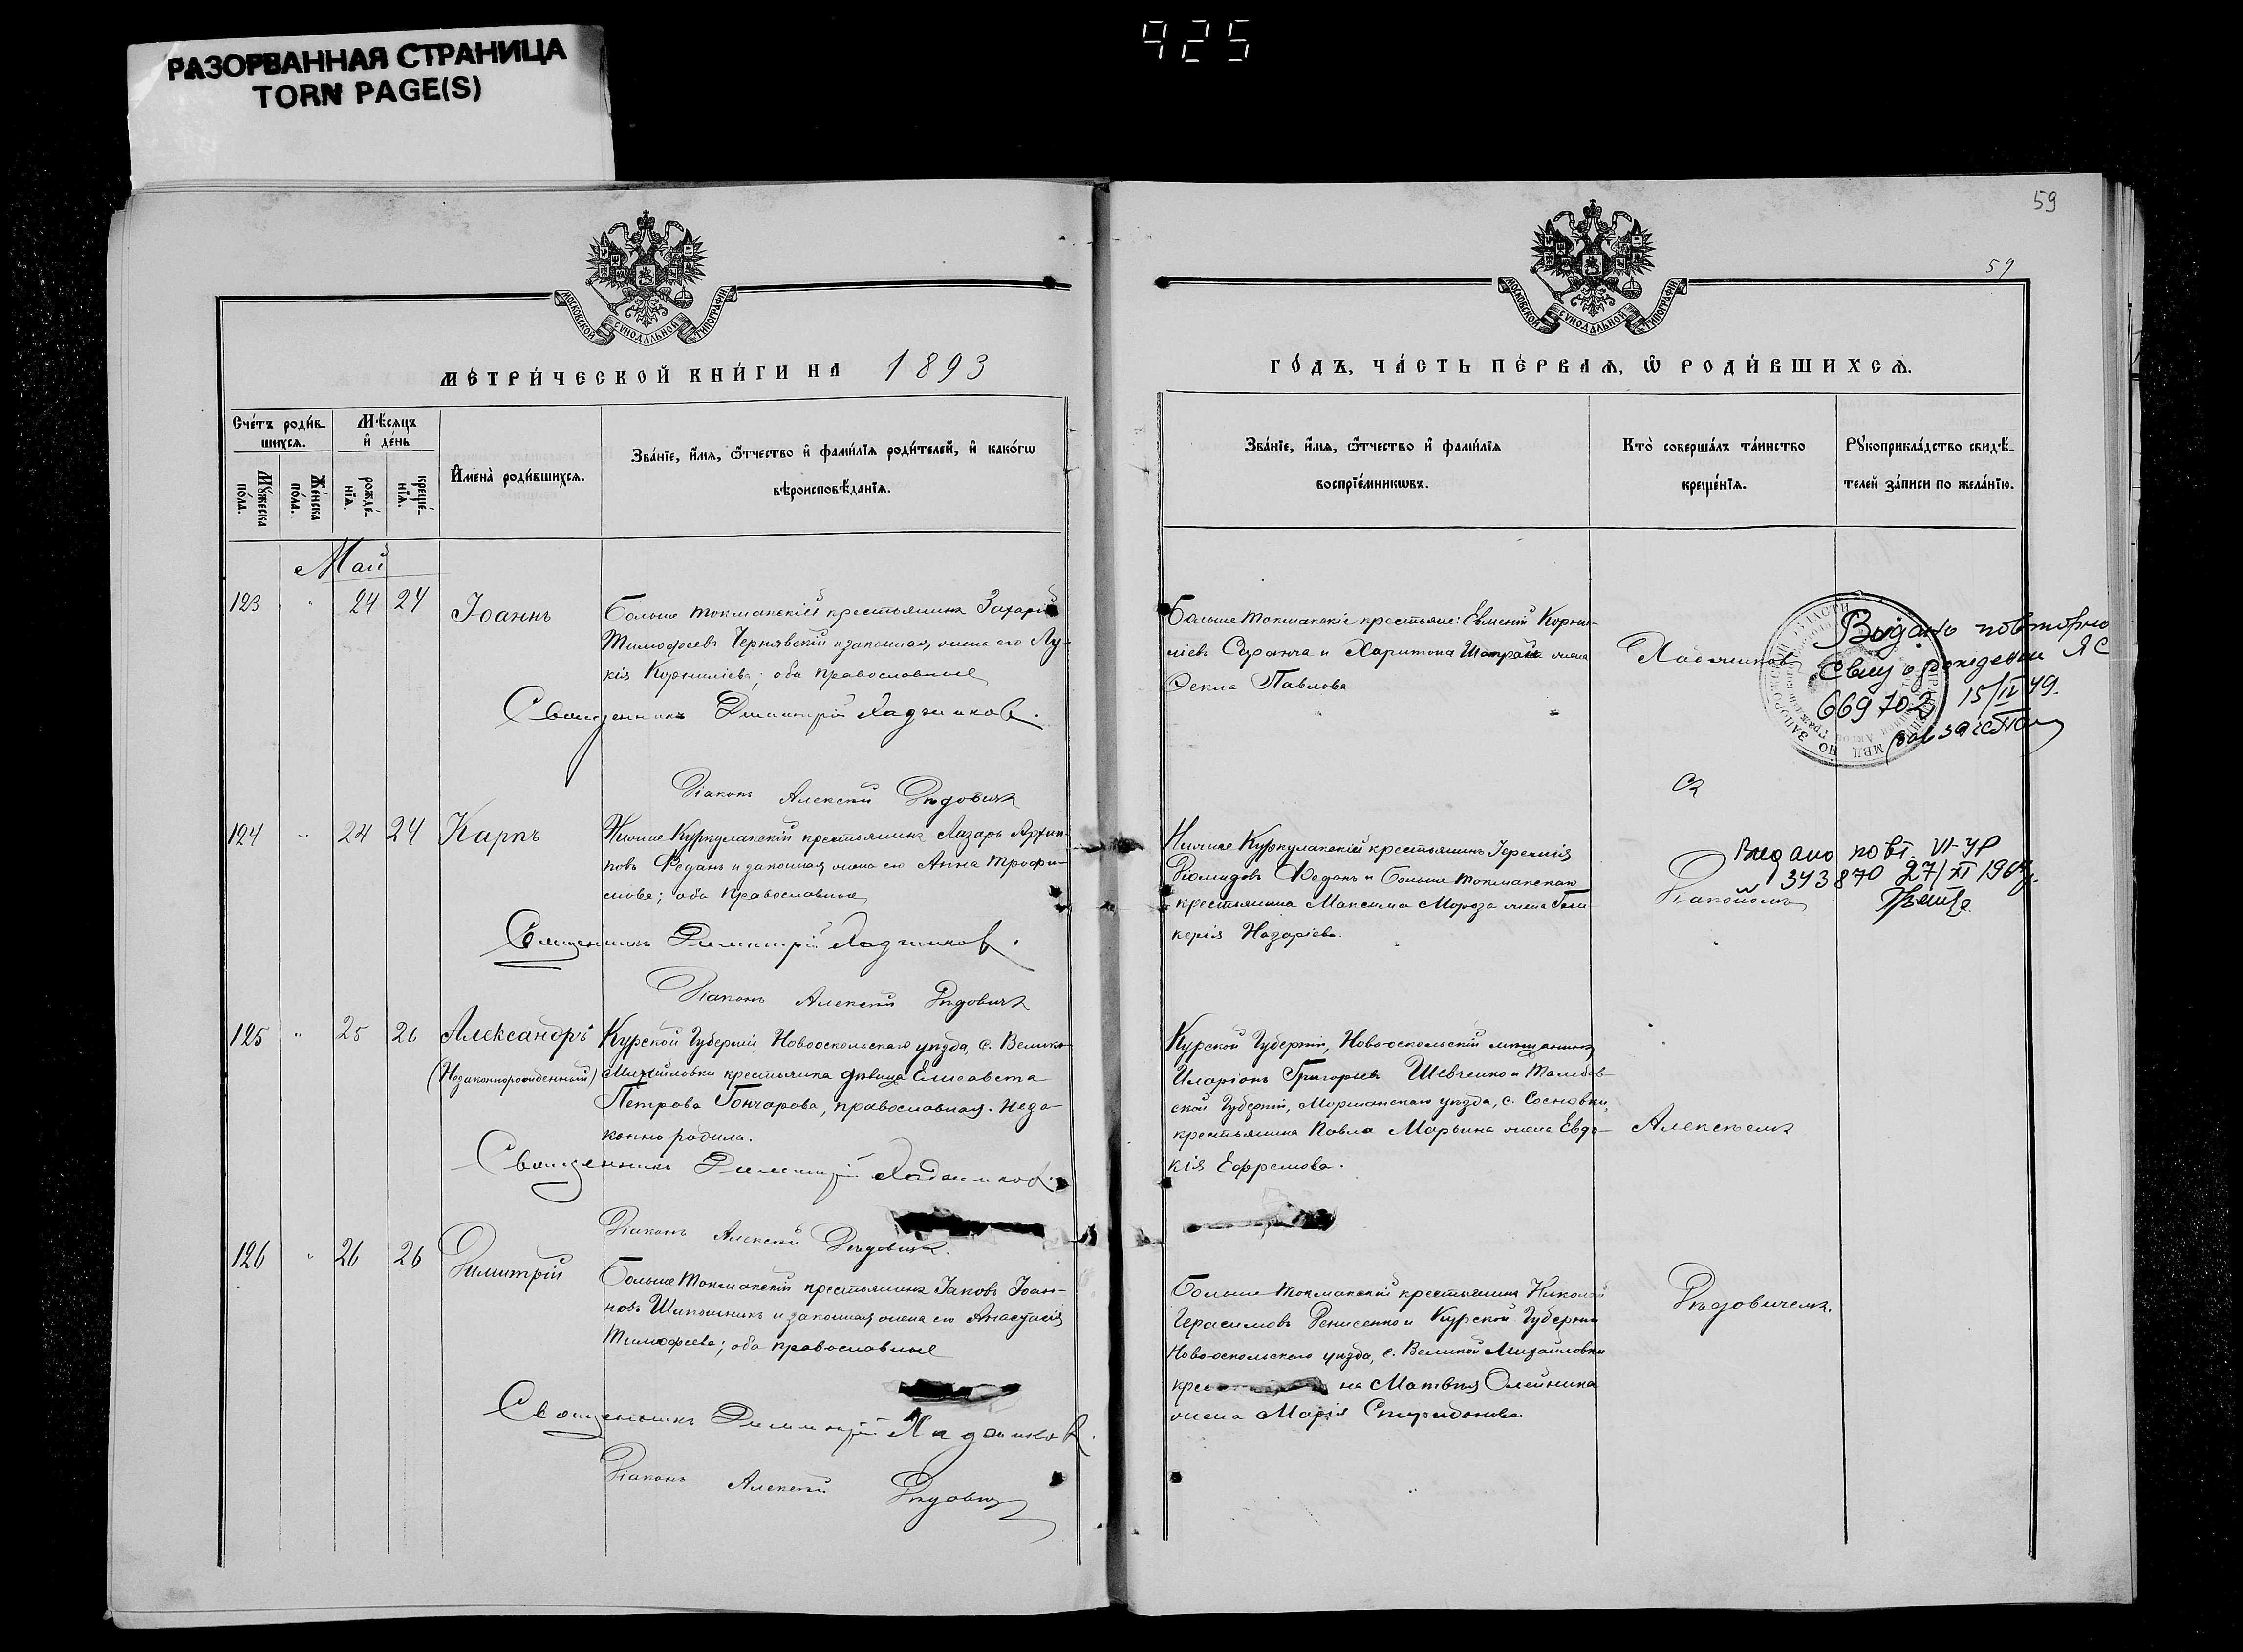 925
РАЗОРВАННАЯ СТРАНИЦА
TORN PAGE(S)
59
59
МОСКОВСКОЙ СѴНОДАЛЬНОЙ ТИПОГРАФІИ
МОСКОВСКОЙ СѴНОДАЛЬНОЙ ТИПОГРАФІИ
МЕТРИ́ЧЕСКОЙ КНИ́ГИ НА 1893
ГО́ДЪ, ЧА́СТЬ ПЕ́РВАѦ, Ѿ РОДИ́ВШИХСѦ.
Сче́тъ роди́в-
шихсѧ.
Мꙋ́жеска
по́ла.
Же́нска
по́ла.
Мѣ́сѧцъ
и҆ де́нь
рожде́-
нїѧ.
креще́-
нїѧ.
И҆мена̀ роди́вшихсѧ.
Зва́нїе, и҆́мѧ, ѻ҆́тчество и҆ фами́лїѧ роди́телей, и҆ како́гѡ
вѣроисповѣ́данїѧ.
Зва́нїе, и҆́мѧ, ѻ҆́тчество и҆ фами́лїѧ
воспрїе́мникѡвъ.
Кто̀ соверша́лъ та́инство
креще́нїѧ.
Рꙋкоприкла́дство свидѣ́-
телей за́писи по жела́нїю.
Май
123 " 24 24 Іоаннъ
Больше Токмакскій крестьянинъ Захарій
Тимофеевъ Чернявскій и законная жена его Лу-
кія Корниліева; оба православные
Священникъ Димитрій Хаджиновъ.
Діаконъ Алексѣй Дѣдовичъ
Больше Токмакскіе крестьяне: Евменій Корни-
ліевъ Саранча и Харитона жена
Фекла Павлова
Видано повторно
669702 15/IV 49.
124 " 24 24 Карпъ
Нижне Куркулакскій крестьянинъ Лазарь Архип-
повъ Феданъ и законная жена его Анна Трофи-
мова; оба православные
Священникъ Димитрій Хаджиновъ.
Діаконъ Алексѣй Дѣдовичъ
Нижне Куркулакскій крестьянинъ Іеремія
Діомидовъ Феданъ и Больше Токмакскаго
крестьянина Максима Мороза жена Гли-
керія Назаріева.
Діакономъ
Видано повт. VI-УР
343870 27/XI 196
125 " 25 26 Александръ
(Незаконнорожденный)
Курской Губерніи, Новооскольскаго уѣзда, с. Велико-
Михайловки крестьянка дѣвица Елисавета
Петрова Гончарова, православная. Неза-
конно родила.
Священникъ Димитрій Хаджиновъ.
Діаконъ Алексѣй Дѣдовичъ.
Курской Губерніи, Новооскольскій мѣщанинъ
Иларіонъ Григорьевъ Шевченко и Тамбов-
ской Губерніи, Моршанскаго уѣзда, с. Сосновки,
крестьянина Павла Марьина жена Евдо-
кія Ефремова.
Алексѣемъ
126 " 26 26 Димитрій
Больше Токмакскій крестьянинъ Іаковъ Іоан-
новъ Шапошникъ и законная жена его Анастасія
Тимофеева; оба православные
Священникъ Димитрій Хаджиновъ.
Діаконъ Алексѣй Дѣдовичъ
Больше Токмакскій крестьянинъ Николай
Герасимовъ Денисенко и Курской Губерніи
Новооскольскаго уѣзда, с. Великой Михайловки
на Матвѣя Олейника
жена Марія Спиридонова
Дѣдовичемъ.